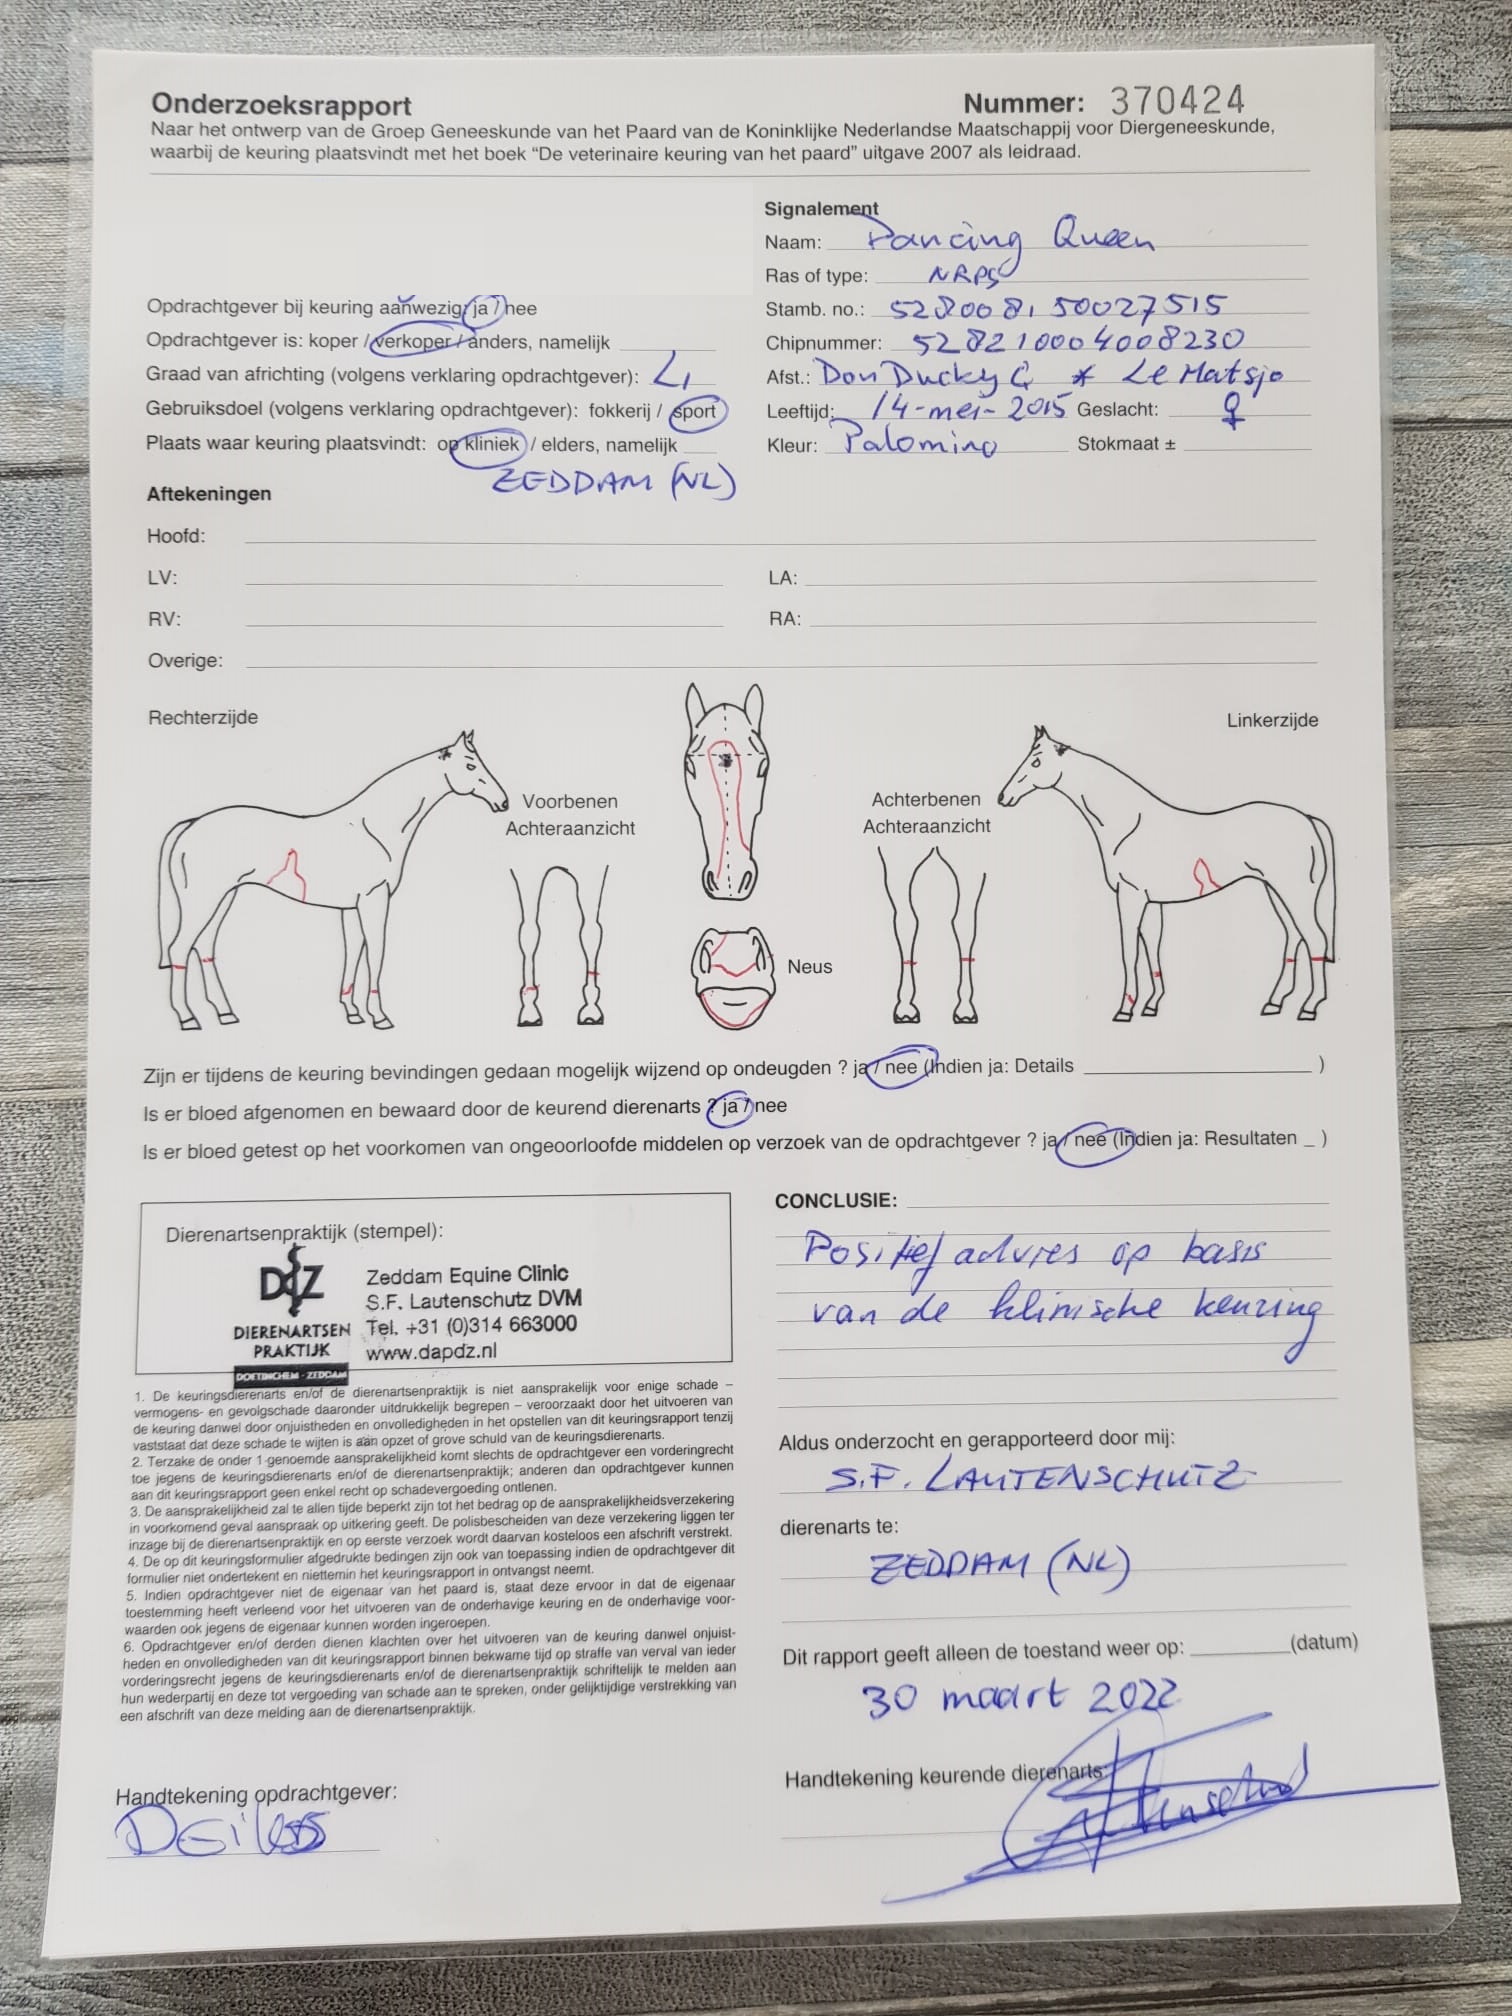 Onderzoeksrapport
Nummer: 370424
Naar het ontwerp van de Groep Geneeskunde van het Paard van de Koninklijke Nederlandse Maatschappij voor Diergeneeskunde,
waarbij de keuring plaatsvindt met het boek “De veterinaire keuring van het paard” uitgave 2007 als leidraad.
Signalement
Naam: Dancing Queen
Ras of type: NRPS
Opdrachtgever bij keuring aanwezig: ja / nee
Stamb. no.:
Opdrachtgever is: koper / verkoper / anders, namelijk
Chipnummer: 528210004008230
Graad van africhting (volgens verklaring opdrachtgever): L1
Afst.: Don Ducky G * Le Matsjo
Gebruiksdoel (volgens verklaring opdrachtgever): fokkerij / sport
Leeftijd: 14-mei-2015 Geslacht: ♀
Plaats waar keuring plaatsvindt: op kliniek / elders, namelijk
Kleur: Palomino Stokmaat ±
ZEDDAM (NL)
Aftekeningen
Hoofd:
LV: LA:
RV: RA:
Overige:
Rechterzijde
Linkerzijde
Voorbenen
Achteraanzicht
Achterbenen
Achteraanzicht
Neus
Zijn er tijdens de keuring bevindingen gedaan mogelijk wijzend op ondeugden ? ja / nee (Indien ja: Details )
Is er bloed afgenomen en bewaard door de keurend dierenarts ? ja / nee
Is er bloed getest op het voorkomen van ongeoorloofde middelen op verzoek van de opdrachtgever ? ja / nee (Indien ja: Resultaten _ )
Dierenartsenpraktijk (stempel):
DZ
DIERENARTSEN
PRAKTIJK
DOETINCHEM - ZEDDAM
Zeddam Equine Clinic
S.F. Lautenschutz DVM
Tel. +31 (0)314 663000
www.dapdz.nl
1. De keuringsdierenarts en/of de dierenartsenpraktijk is niet aansprakelijk voor enige schade –
vermogens- en gevolgschade daaronder uitdrukkelijk begrepen – veroorzaakt door het uitvoeren van
de keuring danwel door onjuistheden en onvolledigheden in het opstellen van dit keuringsrapport tenzij
vaststaat dat deze schade te wijten is aan opzet of grove schuld van de keuringsdierenarts.
2. Terzake de onder 1 genoemde aansprakelijkheid komt slechts de opdrachtgever een vorderingrecht
toe jegens de keuringsdierenarts en/of de dierenartsenpraktijk; anderen dan opdrachtgever kunnen
aan dit keuringsrapport geen enkel recht op schadevergoeding ontlenen.
3. De aansprakelijkheid zal te allen tijde beperkt zijn tot het bedrag op de aansprakelijkheidsverzekering
in voorkomend geval aanspraak op uitkering geeft. De polisbescheiden van deze verzekering liggen ter
inzage bij de dierenartsenpraktijk en op eerste verzoek wordt daarvan kosteloos een afschrift verstrekt.
4. De op dit keuringsformulier afgedrukte bedingen zijn ook van toepassing indien de opdrachtgever dit
formulier niet ondertekent en niettemin het keuringsrapport in ontvangst neemt.
5. Indien opdrachtgever niet de eigenaar van het paard is, staat deze ervoor in dat de eigenaar
toestemming heeft verleend voor het uitvoeren van de onderhavige keuring en de onderhavige voor-
waarden ook jegens de eigenaar kunnen worden ingeroepen.
6. Opdrachtgever en/of derden dienen klachten over het uitvoeren van de keuring danwel onjuist-
heden en onvolledigheden van dit keuringsrapport binnen bekwame tijd op straffe van verval van ieder
vorderingsrecht jegens de keuringsdierenarts en/of de dierenartsenpraktijk schriftelijk te melden aan
hun wederpartij en deze tot vergoeding van schade aan te spreken, onder gelijktijdige verstrekking van
een afschrift van deze melding aan de dierenartsenpraktijk.
Handtekening opdrachtgever:
CONCLUSIE:
Positief advies op basis
van de klinische keuring
Aldus onderzocht en gerapporteerd door mij:
S.F. LAUTENSCHUTZ
dierenarts te:
ZEDDAM (NL)
Dit rapport geeft alleen de toestand weer op: (datum)
30 maart 2022
Handtekening keurende dierenarts: